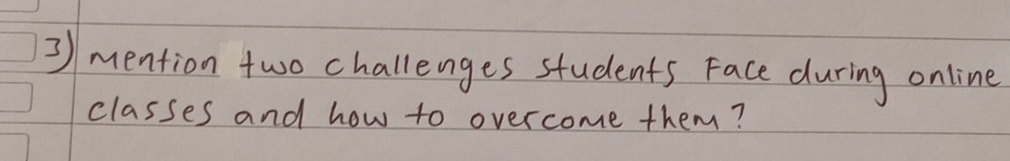 3) Mention two challenges students Face during online
classes and how to overcome them?